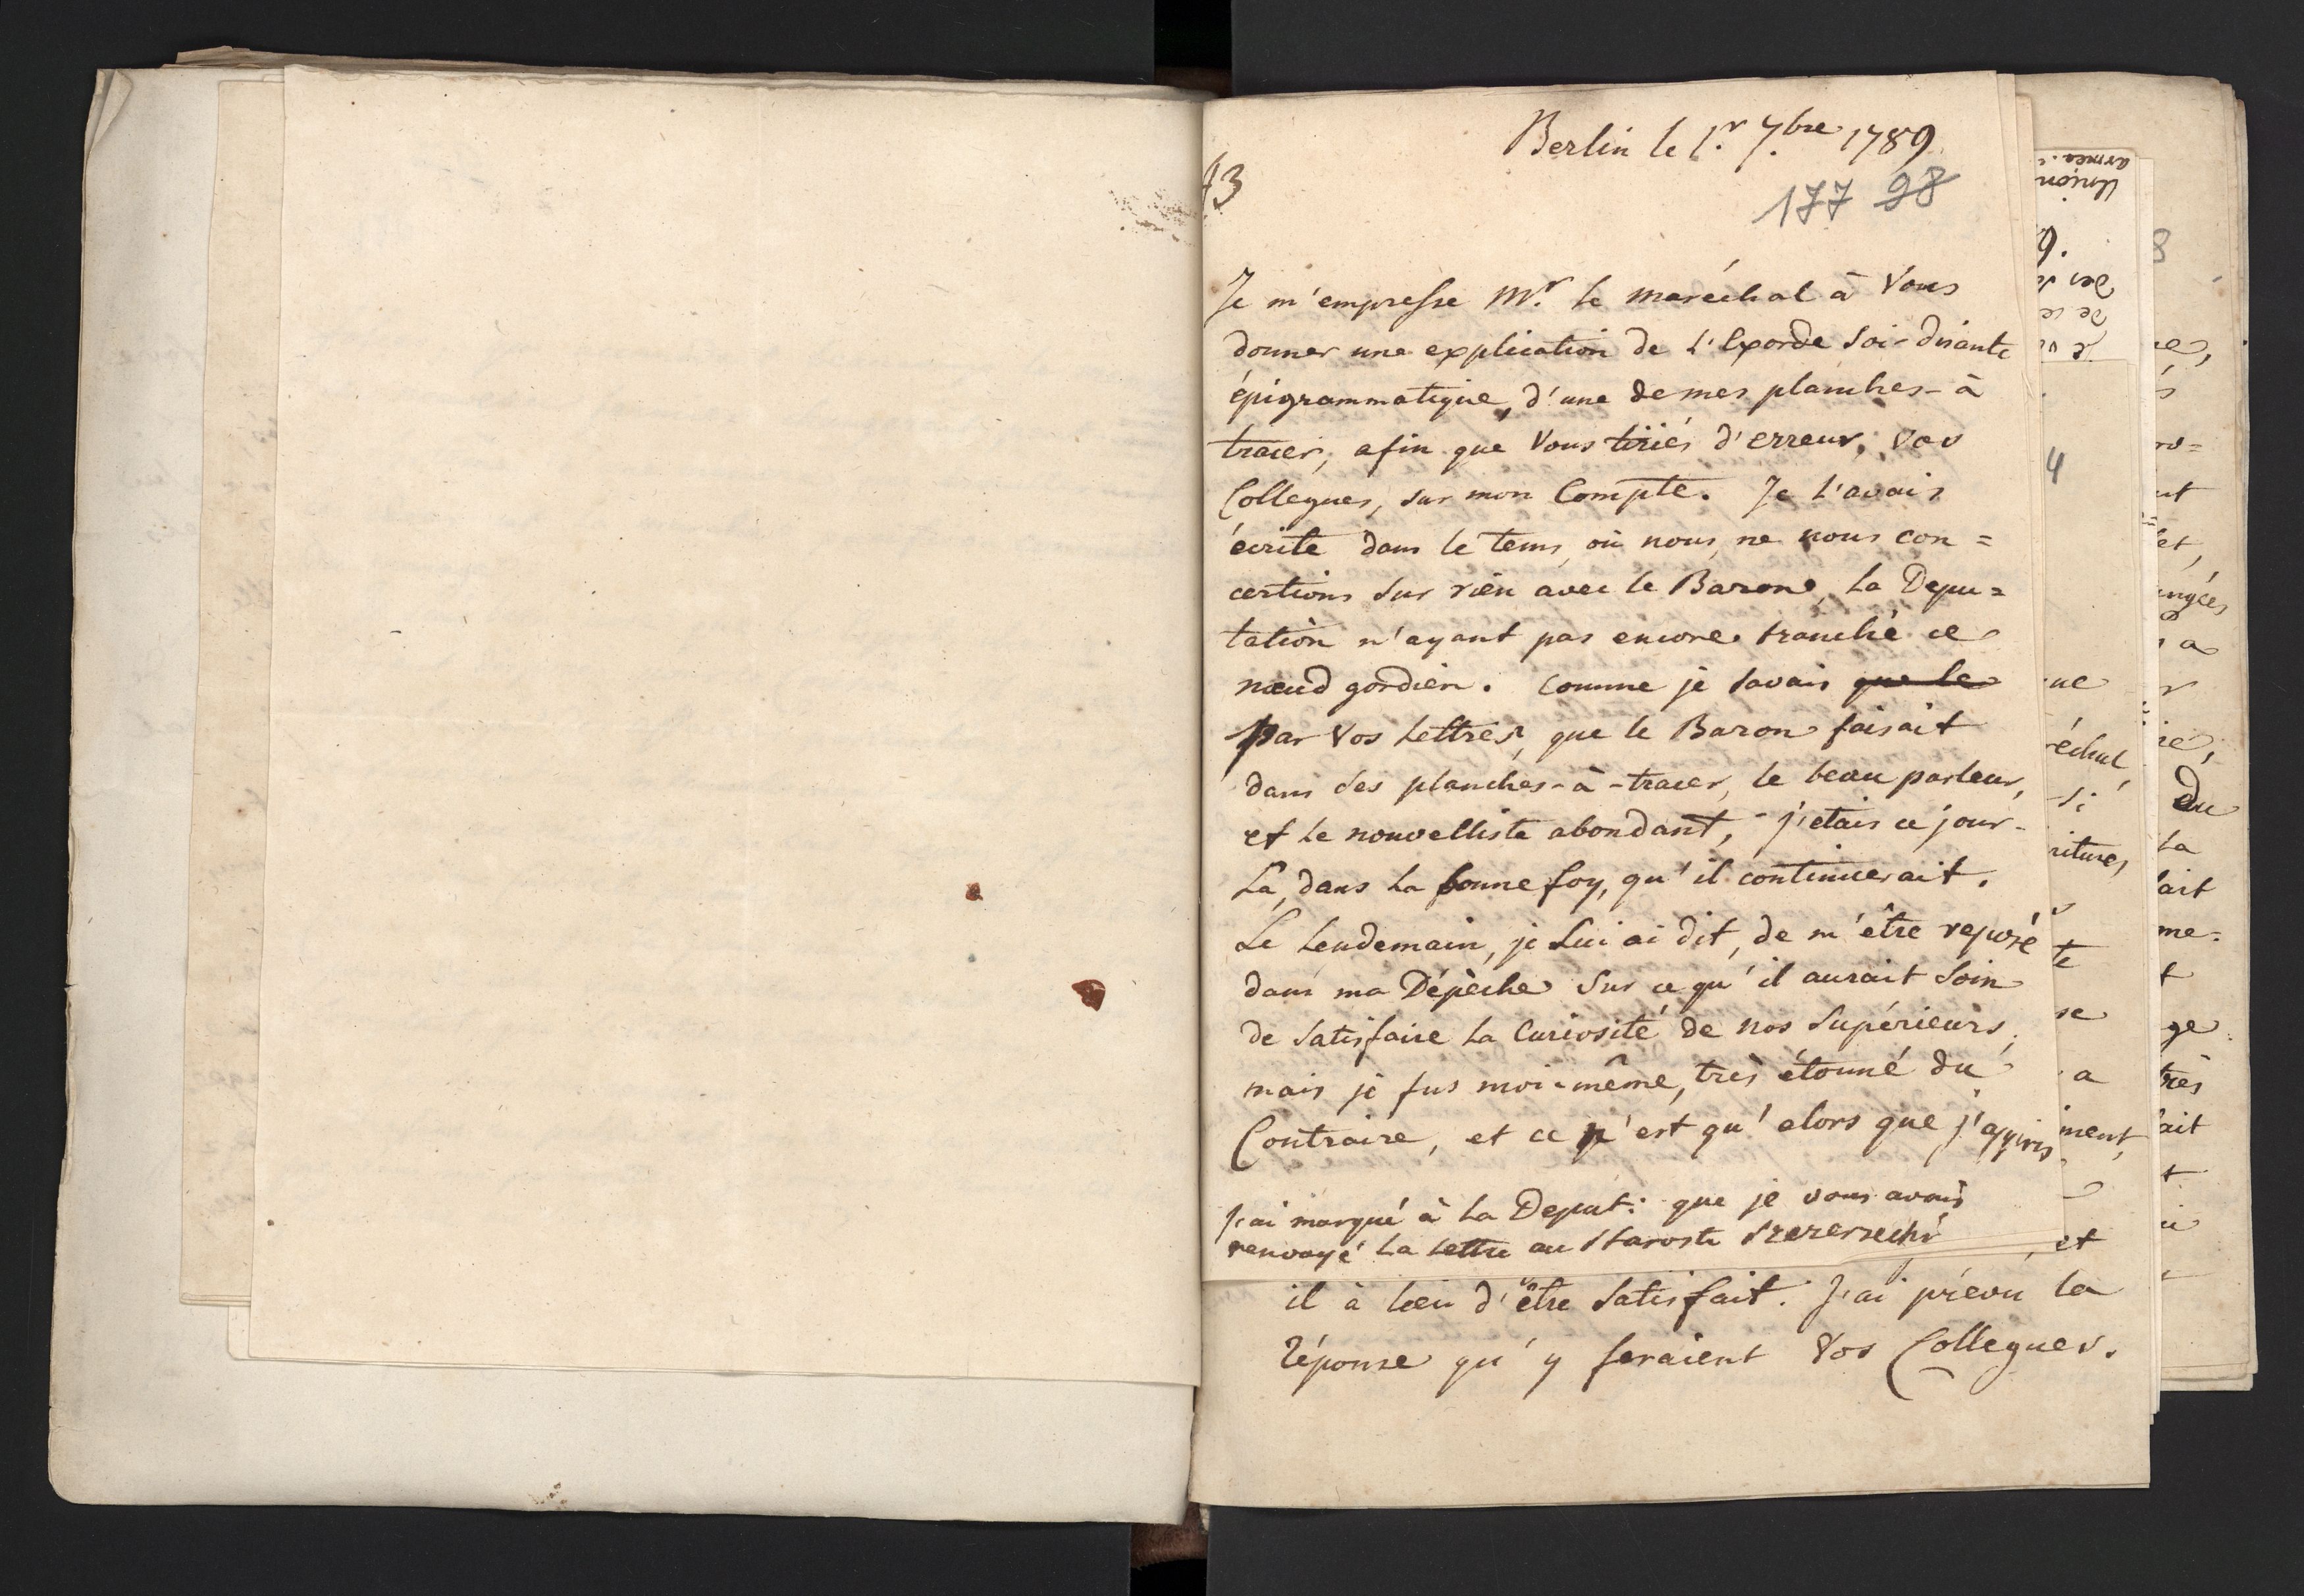 Berlin le 1.r 7.bre 1789
43
177 98
Je m'empresse M.r le maréchal à Vous
donner une explication de L'Exorde soi-disante
épigrammatique, d'une de mes planches-à
tracer, afin que Vous tiriés d'erreur, vos
Collegues, sur mon Compte. Je L'avais
écrite dans le tems, où nous, ne nous con=
certions sur rien avec le Baron, La Depu=
tation n'ayant pas encore tranché ce
nœud gordien. Comme je savais que le
par Vos Lettres, que le Baron faisait
dans ses planches-à-tracer, le beau parleur,
et le nouvelliste abondant, j'etais ce jour-
La, dans La bonne foy, qu'il continuerait.
Le Lendemain, je Lui ai dit, de m'être reposé
dans ma Dépèche sur ce qu'il aurait soin
de satisfaire La Curiosité de nos Supérieurs,
mais je fus moi-même, très étonné du
Contraire, et ce n'est qu'alors que j'appris
J'ai marqué à La Deput: que je vous avais
renvoyé La Lettre au Staroste
il à lieu d'être satisfait. J'ai prévu la
réponse qu'y feraient Vos Collegues.
Union
9.
4
ne
échal,
si
ritures,
te
se
a
iment,
et
8
et,
a
Du
La
ait
me.
t
ge
très
ait
t